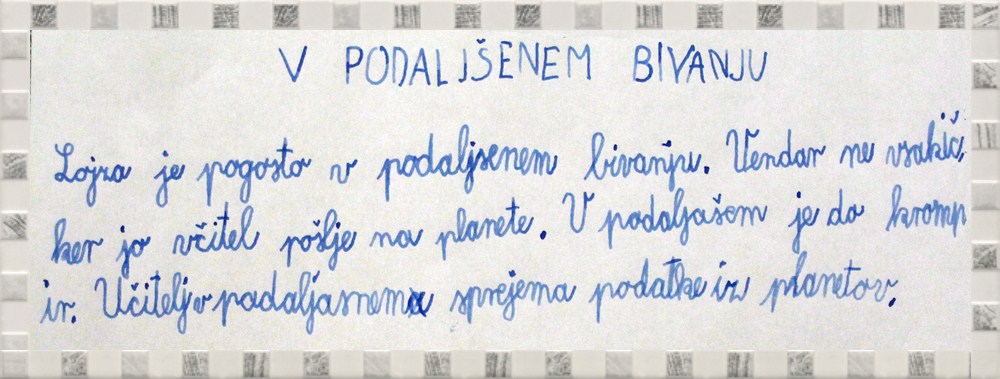 V PODALJŠENEM BIVANJU
Lojza je pogosto v podaljsenem bivanju. Vendar ne vsakič,
ker jo včitel pošlje na planete. V podaljašem je do kromp
ir. Učitelj v padaljasnema sprejema podatke iz planetov.